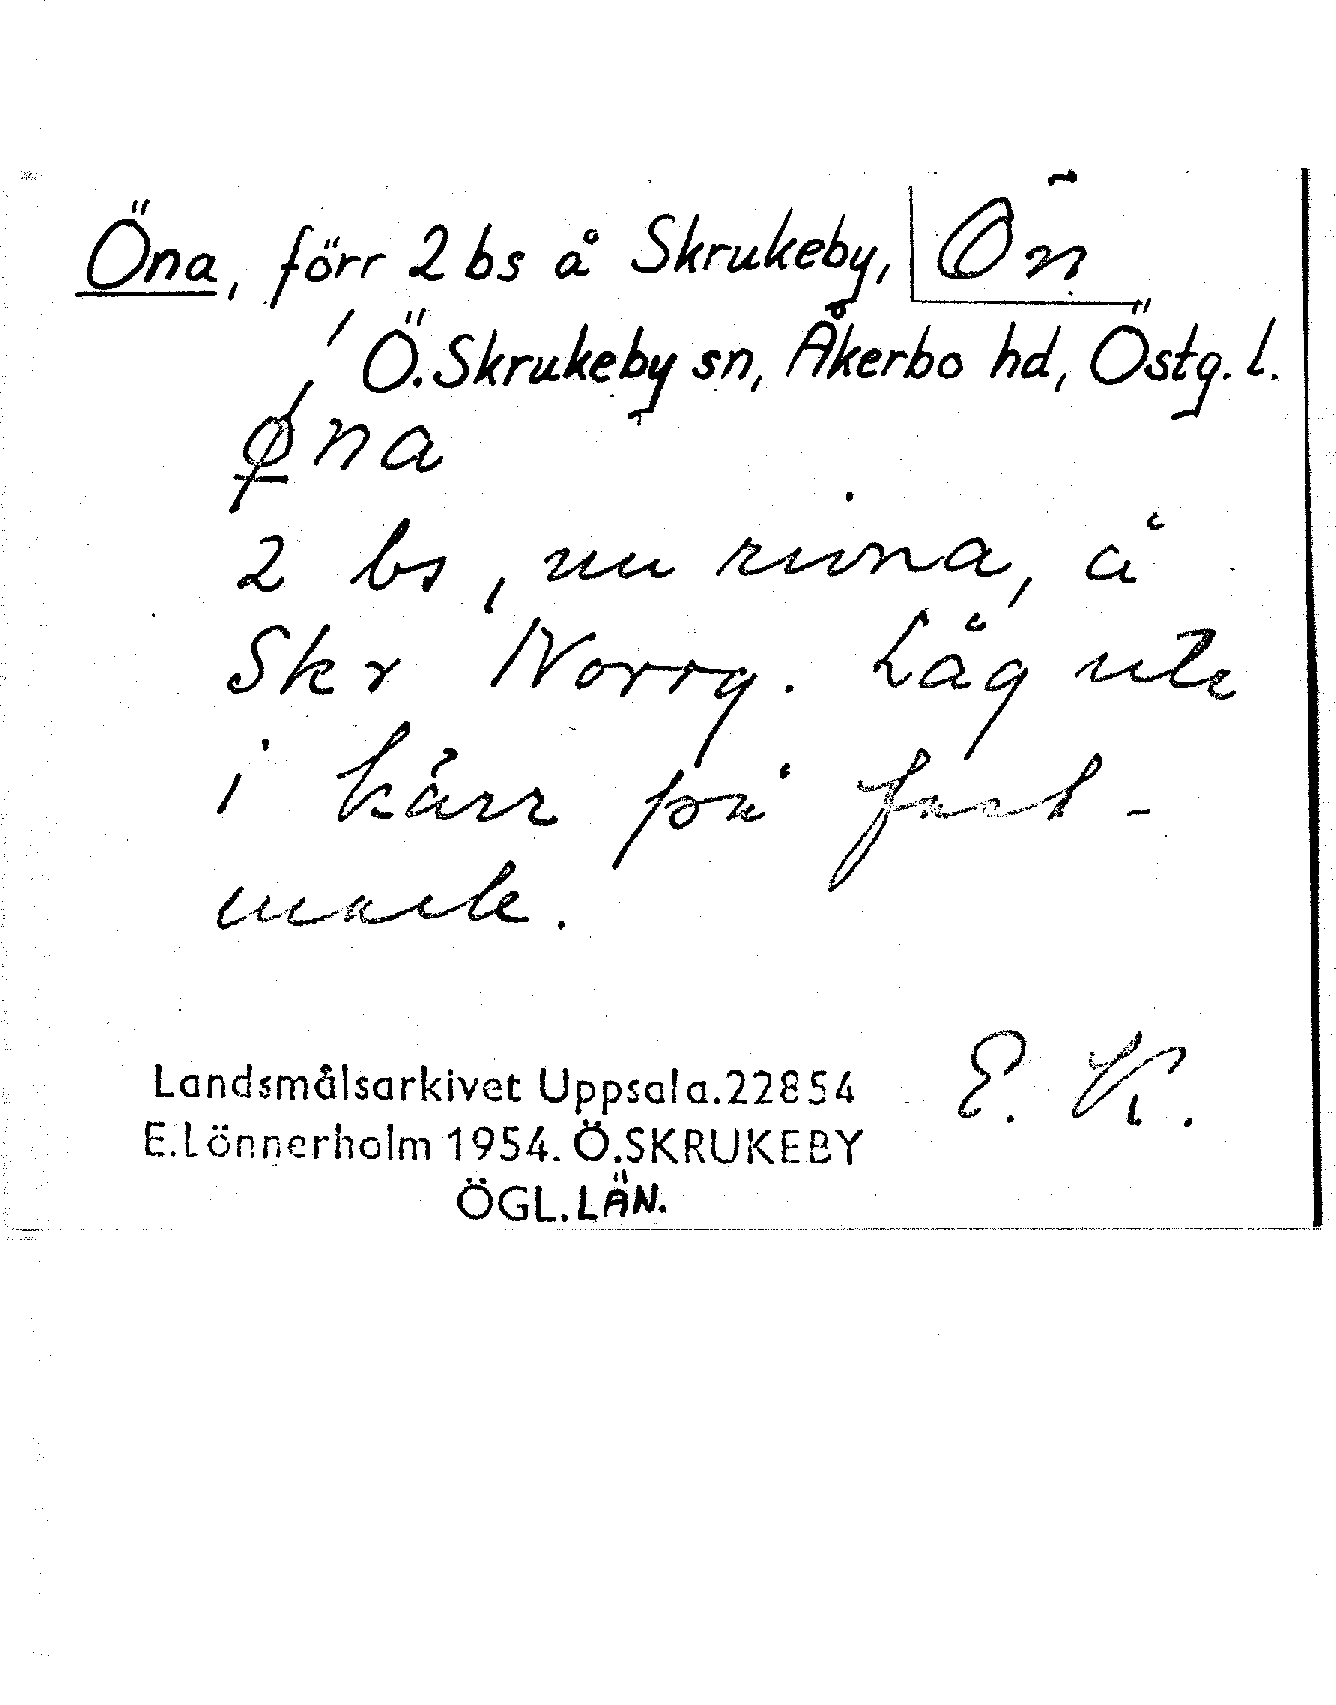 Öna, förr 2 bs å Skrukeby, Ön
Ö. Skrukeby sn, Åkerbo hd, Östg. l.
ǿna
2 bs, nu rivna, å
Skr Norrg. Låg ute
i kärr på fast-
mark.
E. K.
Landsmålsarkivet Uppsala. 22854
E. Lönnerholm 1954. Ö. SKRUKEBY
ÖGL. LÄN.